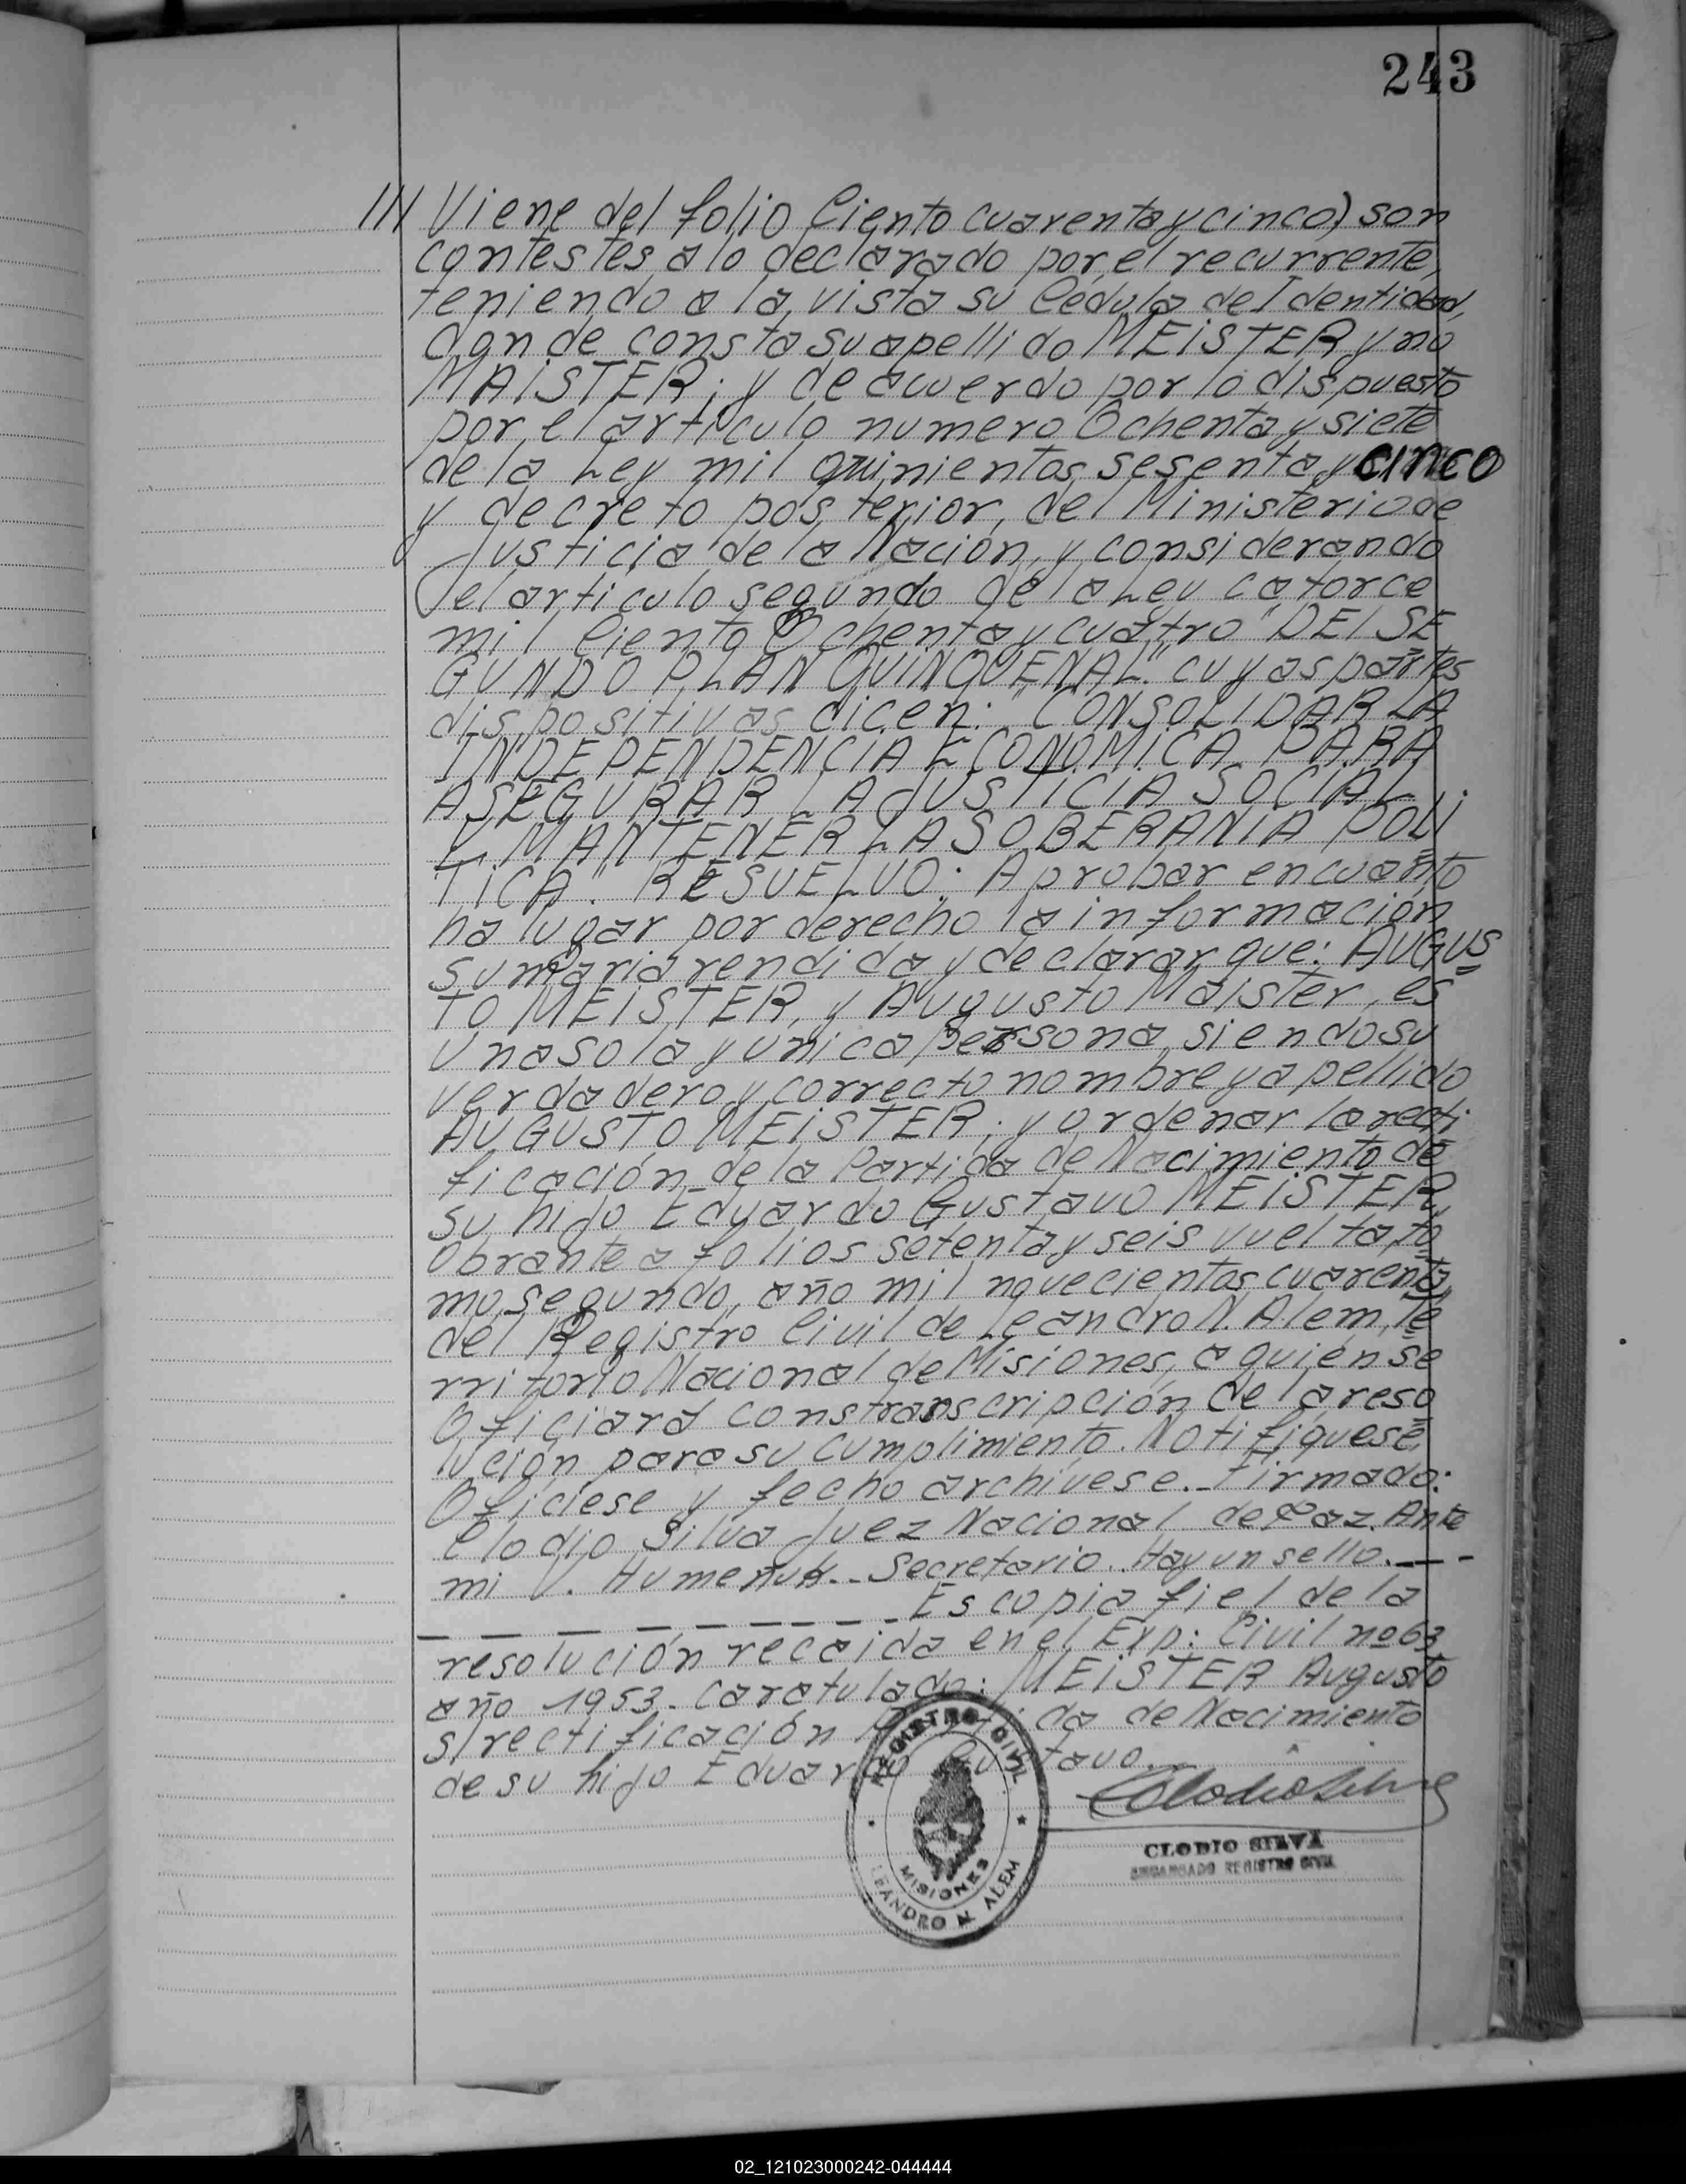 243
/// Viene del folio Ciento cuarenta y cinco) son
contestes a lo declarado por el recurrente,
teniendo a la vista su Cédula de Identidad,
donde consta su apellido MEiSTER y no
MAiSTER; y de acuerdo por lo dispuesto
por el artículo numero Ochenta y siete
de la Ley mil quinientos sesenta y cinco
y decreto posterior, del Ministerio de
Justicia de la Nación, y considerando
el articulo segundo de la Ley catorce
mil Ciento Ochenta y cuatro "DEl SE
GUNDO PLAN QUiNQUENAL" cuyas partes
dispositivas dicen: "CONSOLIDAR LA
INDEPENDENCiA ECONOMiCA PARA
ASEGURAR LA JUSTiCiA SOCiAL
Y MANTENER LA SOBERANiA POLi
TiCA". RESUELVO: Aprobar en cuanto
ha lugar por derecho la información
sumaria rendida y declarar que: AUGUS
TO MEiSTER, y Augusto Maister, es
una sola y unica persona, siendo su
verdadero y correcto nombre y apellido
AUGUSTO MEiSTER; y ordenar la recti
ficación de la Partida de Nacimiento de
su hijo Eduardo Gustavo MEiSTER,
Obrante a folios setenta y seis vuelta, to
mo segundo, año mil novecientos cuarenta,
del Registro Civil de Leandro N. Alem, Te
rritorio Nacional de Misiones, a quién se
Oficiará cons transcripción de la reso
lución para su cumplimiento. Notifiquese,
Ofíciese y fecho archívese._ Firmado:
Clodio Silva Juez Nacional de Paz. Ante
mi V. Humeñuk._ Secretario. Hay un sello._ _ _
_ _ _ _ _ _ _ _ Es copia fiel de la
resolución recaida en el Exp: Civil nº 63
año 1953. Caratulado: MEiSTER Augusto
s/rectificación Partida de Nacimiento
de su hijo Eduardo Gustavo._
REGISTRO CIVIL
MISIONES
LEANDRO N. ALEM
Clodio Silva
CLODIO SILVA
ENCARGADO REGISTRO CIVIL
02_121023000242-044444